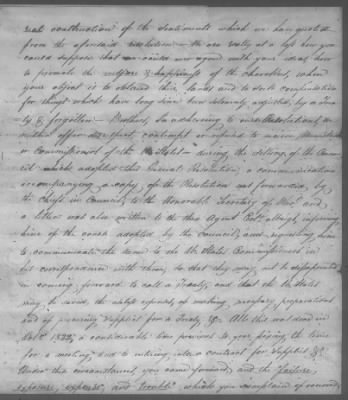 real construction of the sentiments which we have quoted
from the aforesaid resolution – We are really at a loss how you
could suppose that we agree with your ideas how
to promote the welfare & happiness of the Cherokees, when
your object is to obtain their lands and to seek compensation
for things which have long since been solemnly adjusted, by a Trea-
ty & forgotten – Brothers, In adhering to our Resolutions we
neither offer disrespect, contempt or refusal to receive Ministers
or Commissioners of the U States – during the sitting of the Coun-
cil which adopted this General Resolution, a communication
accompanying a copy of the Resolution was forwarded, by
the Chiefs in Council, to the Honorable Secretary of War, and
a letter was also written to the then Agent Col. Meigs informing
him of the course adopted by the Council, and requesting him
to communicate the same to the U States Commissioners in
his correspondence with them, so that they may not be disappointed
in coming forward to call a Treaty, and that the U States
may be saved the useless expense, of making preparations
and of procuring supplies for a Treaty &c. All this was done in
1822, a considerable time previous to your fixing the time
for a meeting, and to entering into a contract for supplies &c.
Under this circumstance, you came forward, and the failure,
exposure, expense, and trouble which you complain of